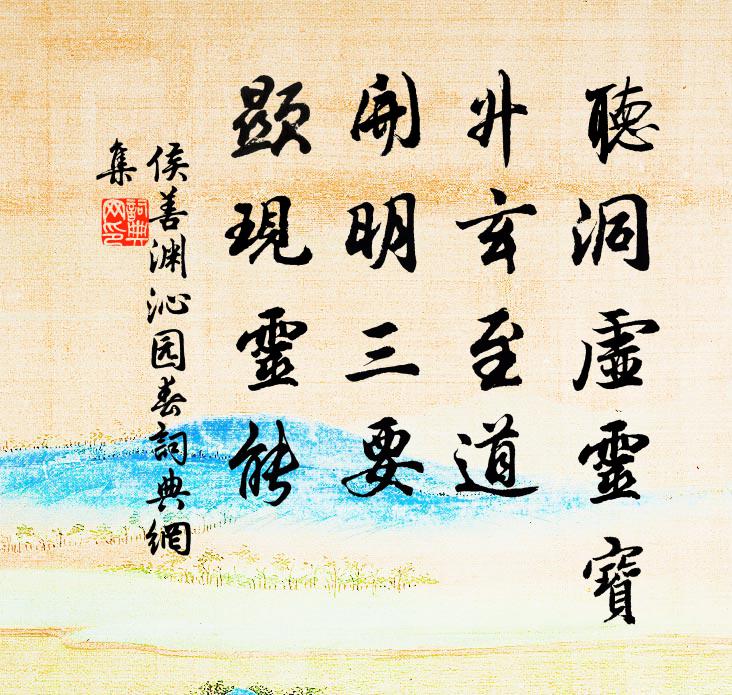 聽洞虛靈寶
升玄至道
開明三要
顯現靈能
侯善渊沁园春詞典網
集
詞典
网印